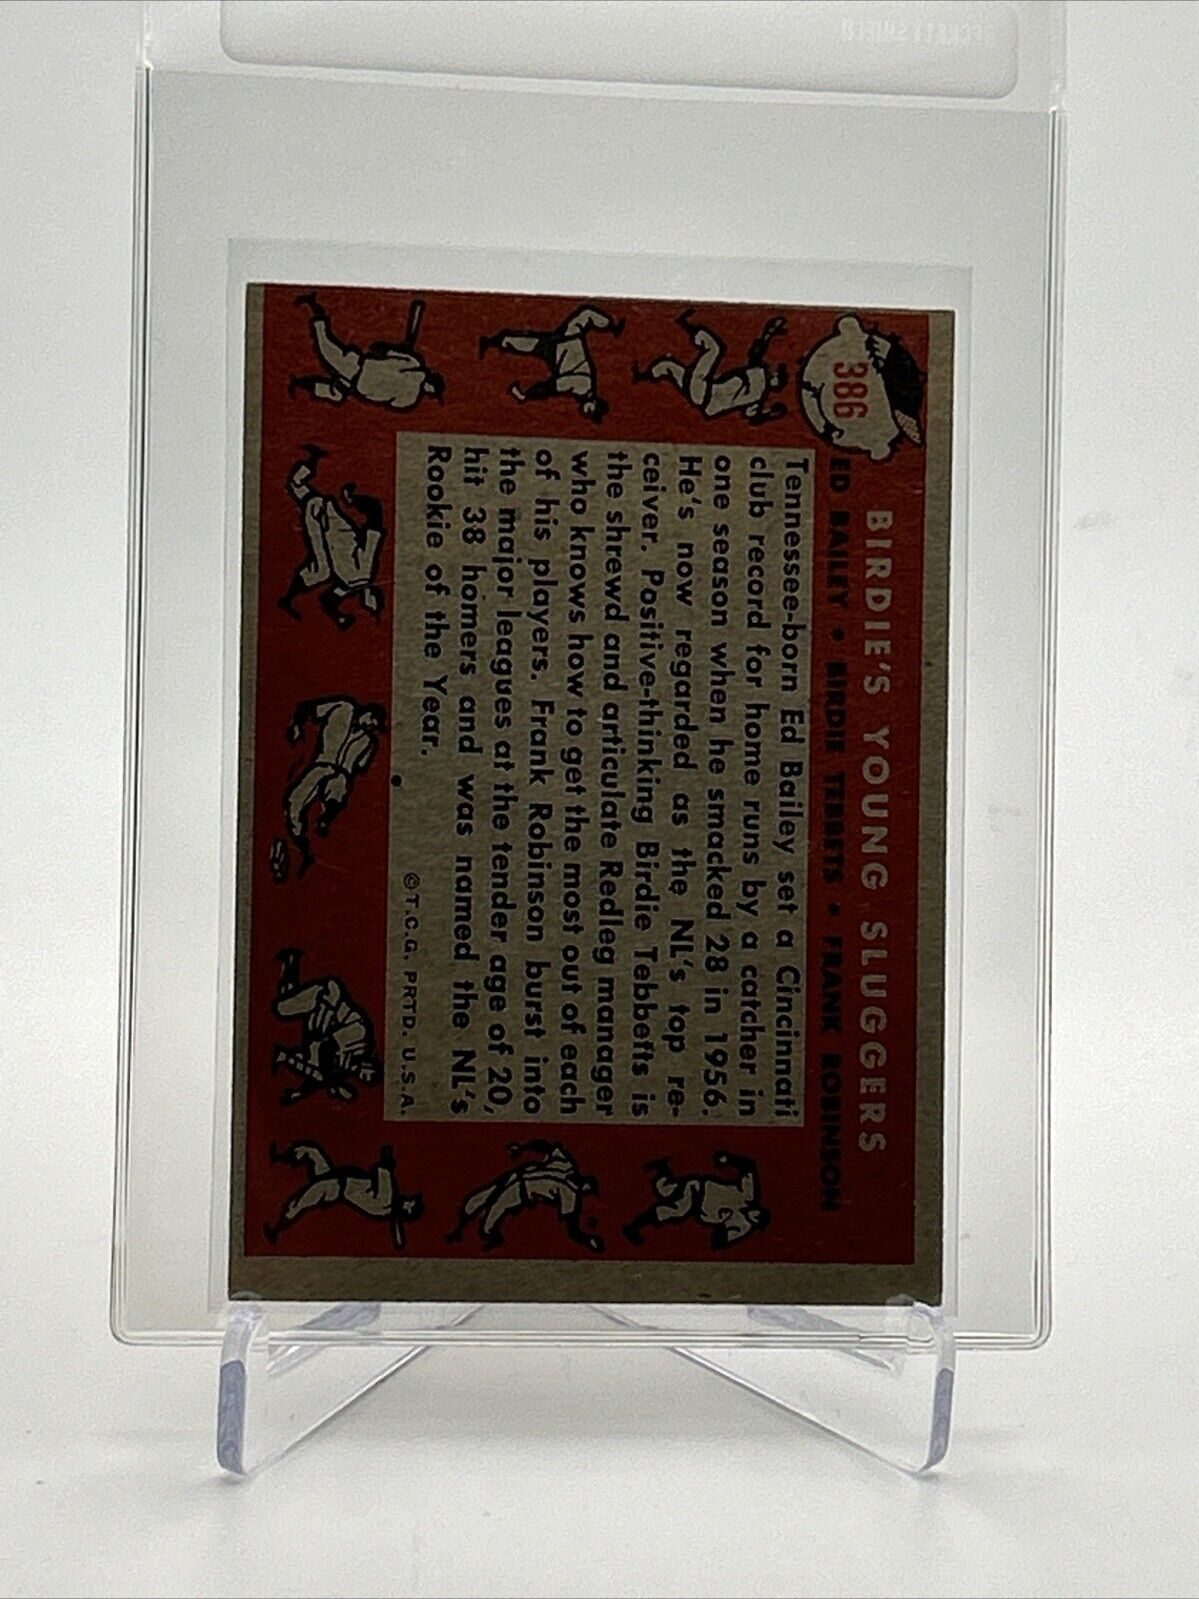 386
BIRDIE'S YOUNG SLUGGERS
ED BAILEY • BIRDIE TEBBETS • FRANK ROBINSON
Tennessee-born Ed Bailey set a Cincinnati
club record for home runs by a catcher in
one season when he smacked 28 in 1956.
He's now regarded as the NL's top re-
ceiver. Positive-thinking Birdie Tebbetts is
the shrewd and articulate Redleg manager
who knows how to get the most out of each
of his players. Frank Robinson burst into
the major leagues at the tender age of 20,
hit 38 homers and was named the NL's
Rookie of the Year.
©T.C.G. PRTD. U.S.A.